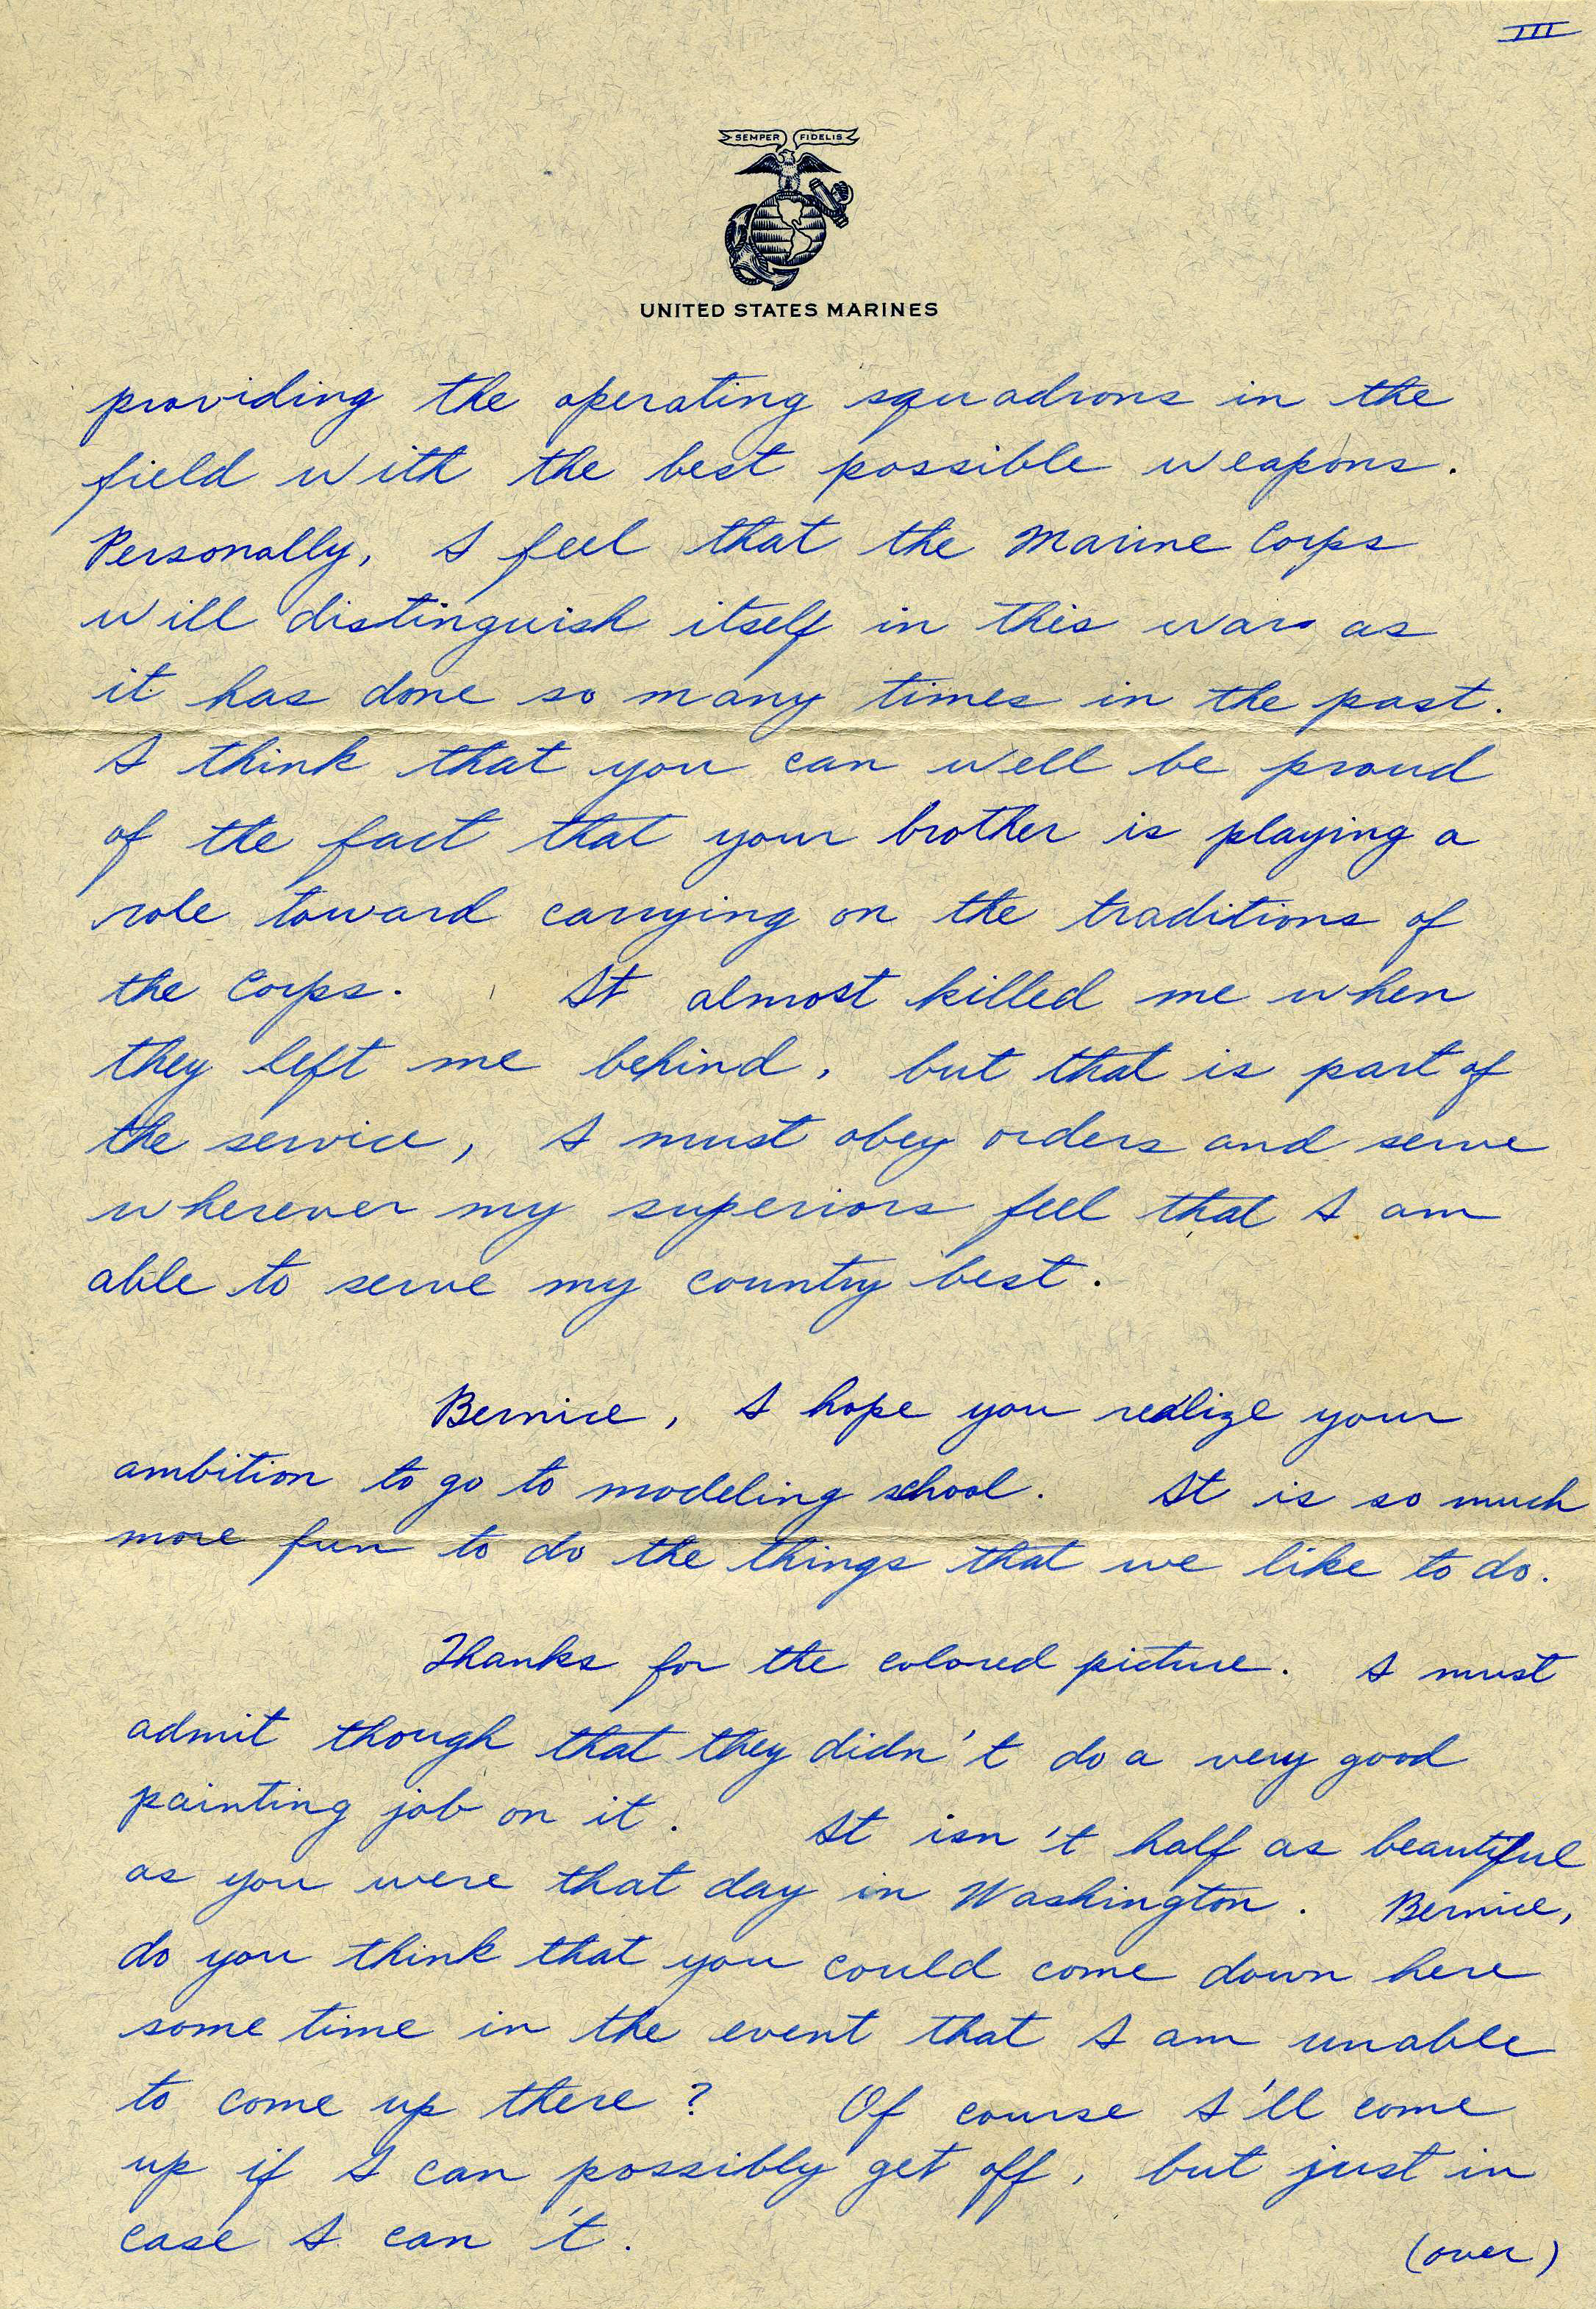 III
SEMPER FIDELIS
UNITED STATES MARINES
providing the operating squadrons in the
field with the best possible weapons.
Personally, I feel that the Marine Corps
will distinguish itself in this war as
it has done so many times in the past.
I think that you can well be proud
of the fact that your brother is playing a
role toward carrying on the traditions of
the Corps. It almost killed me when
they left me behind, but that is part of
the service, I must obey orders and serve
wherever my superiors feel that I am
able to serve my country best.
Bernice, I hope you realize your
ambition to go to modeling school. It is so much
more fun to do the things that we like to do.
Thanks for the colored picture. I must
admit though that they didn't do a very good
painting job on it. It isn't half as beautiful
as you were that day in Washington. Bernice,
do you think that you could come down here
some time in the event that I am unable
to come up there? Of course I'll come
up if I can possibly get off, but just in
case I can't.
(over)